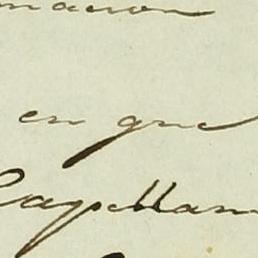 macion
en que
Capellan